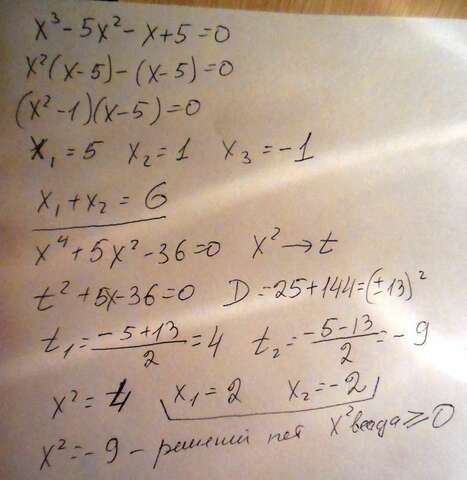 x³ - 5x² - x + 5 = 0
x²(x-5) - (x-5) = 0
(x²-1)(x-5) = 0
x₁ = 5 x₂ = 1 x₃ = -1
x₁ + x₂ = 6
x⁴ + 5x² - 36 = 0 x² → t
t² + 5x - 36 = 0 D = 25 + 144 = (±13)²
t₁ = (-5+13)/2 = 4 t₂ = (-5-13)/2 = -9
x² = 4 x₁ = 2 x₂ = -2
x² = -9 - решений нет x² всегда ≥ 0